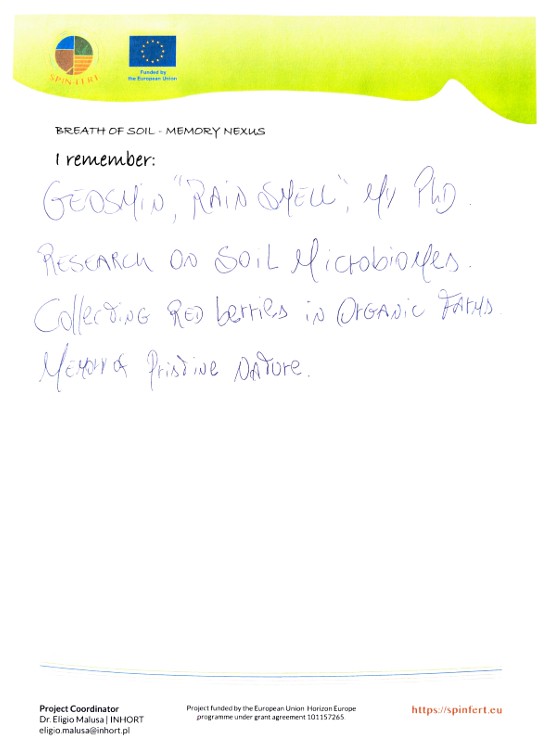 SPINFERT
Funded by
the European Union
BREATH OF SOIL - MEMORY NEXUS
I remember:
GEOSMIN, "RAIN SMELL", MY PhD.
RESEARCH ON SOIL MicrobioMes.
Collecting RED berries in ORGANIC FarMs.
MEMORY of Pristine NATURE.
Project Coordinator
Dr. Eligio Malusa | INHORT
eligio.malusa@inhort.pl
Project funded by the European Union Horizon Europe
programme under grant agreement 101157265.
https://spinfert.eu